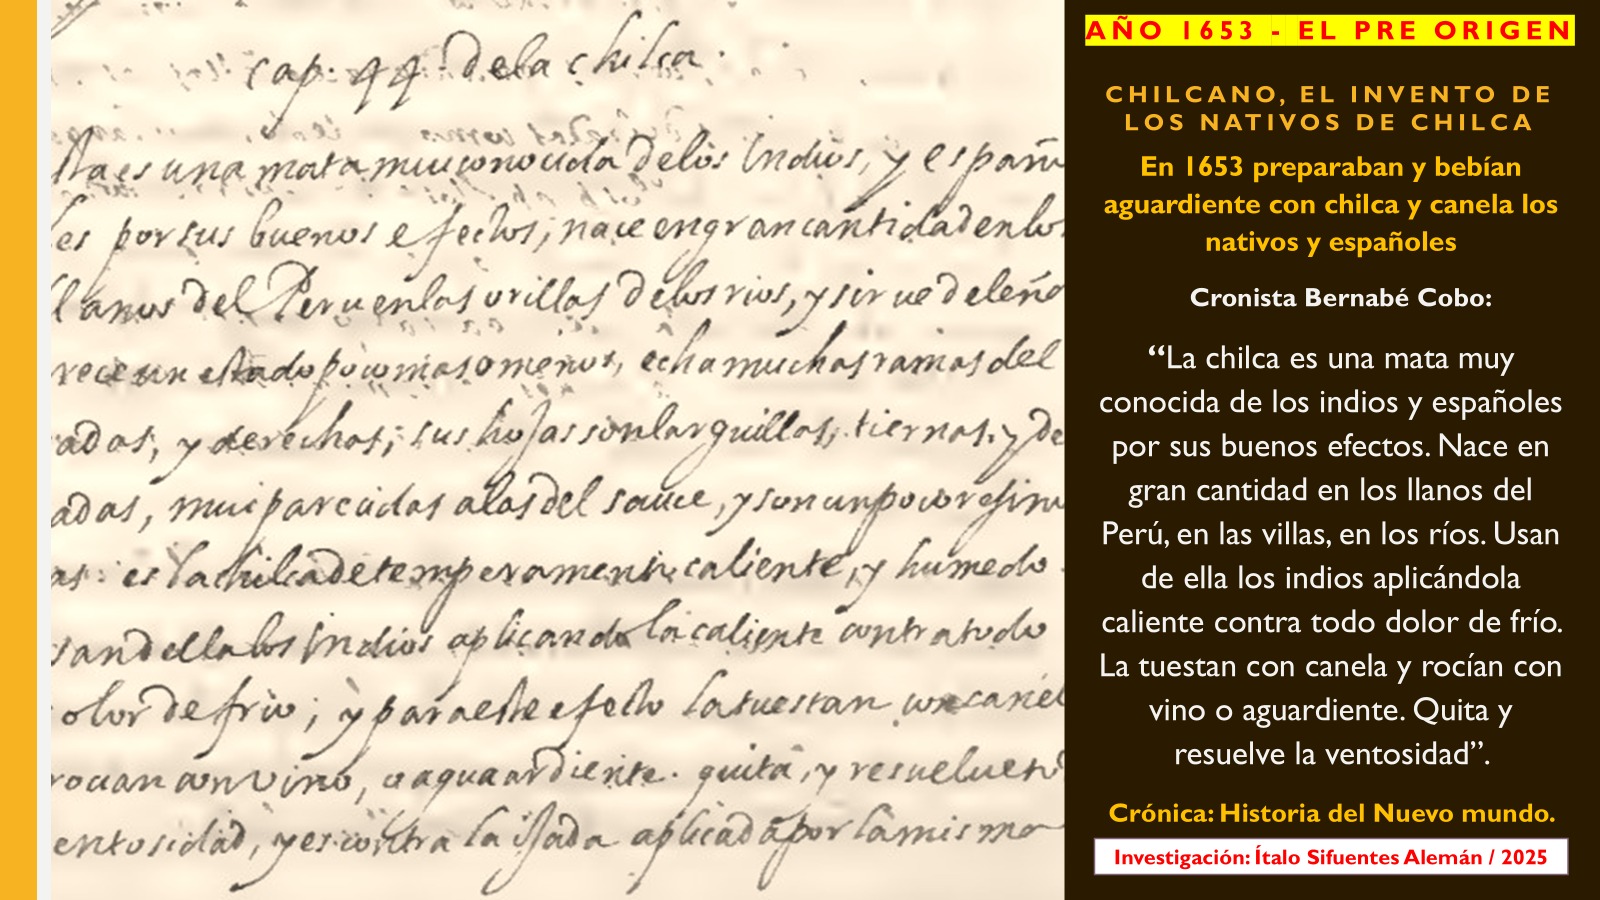 cap. 44. dela chilca.
sta es una mata mui conocida delos Indios, y españo
les por sus buenos efectos; nace en gran cantidad en los
llanos del Peru en las orillas delos rios, y sirve de leña
crece un estado poco mas o menos, echa muchas ramas del
adas, y derechas; sus hojas son larguillas, tiernas, y de
adas, mui parecidas alas del sauce, y son un poco resino
as: es la chilca de temperamento caliente, y humedo.
usan della los Indios aplicandola caliente contra todo
dolor de frio; y para este efecto la tuestan con canel
rocian con vino, o aguardiente. quita, y resuelve
entosidad, y es contra la ijada aplicada por la misma
AÑO 1653 - EL PRE ORIGEN
CHILCANO, EL INVENTO DE
LOS NATIVOS DE CHILCA
En 1653 preparaban y bebían
aguardiente con chilca y canela los
nativos y españoles
Cronista Bernabé Cobo:
“La chilca es una mata muy
conocida de los indios y españoles
por sus buenos efectos. Nace en
gran cantidad en los llanos del
Perú, en las villas, en los ríos. Usan
de ella los indios aplicándola
caliente contra todo dolor de frío.
La tuestan con canela y rocían con
vino o aguardiente. Quita y
resuelve la ventosidad”.
Crónica: Historia del Nuevo mundo.
Investigación: Ítalo Sifuentes Alemán / 2025